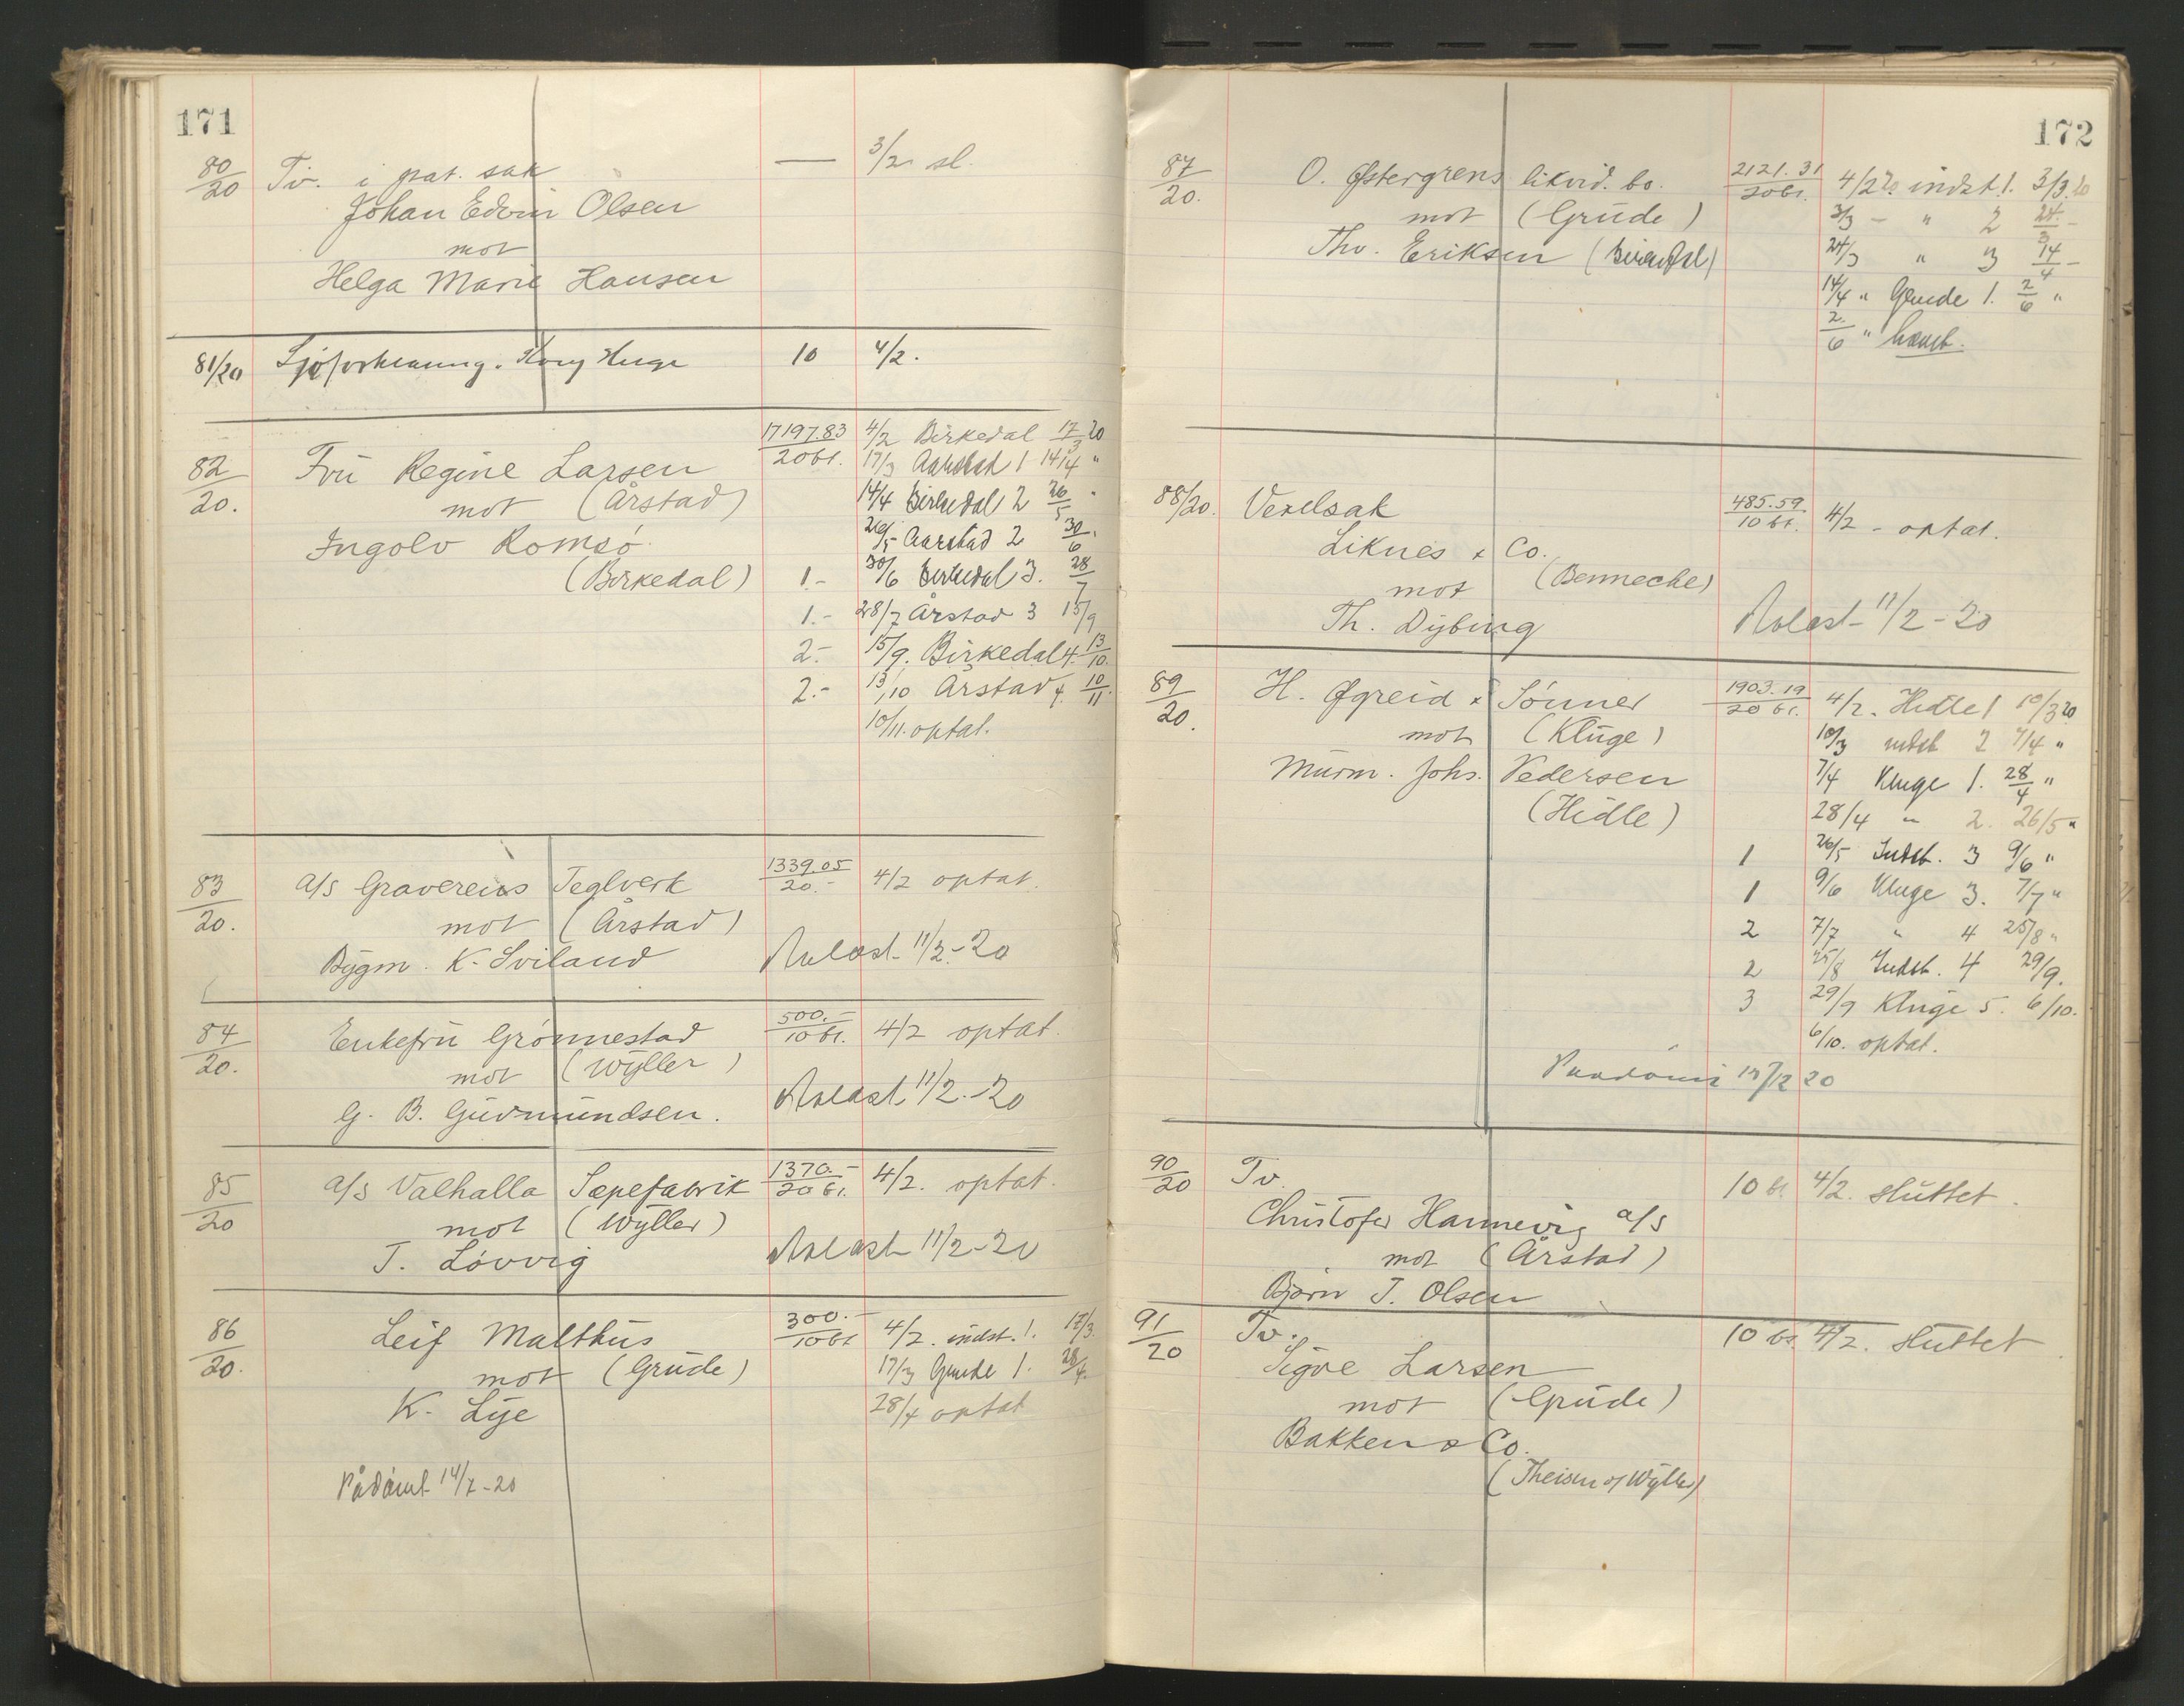 171
80/20 Tv. i pat. sak — 3/2 sl.
Johan Edvin Olsen
mot
Helga Marie Hansen
81/20 Sjøforklaring. Kong Helge 10 4/2.
82/20. Fru Regine Larsen 17197.83/20 bl. 4/2 Birkedal 17/3 20
mot (Årstad) 17/3 Aarstad 1 14/4 "
Ingolv Romsø 14/4 Birkedal 2 26/5 "
(Birkedal) 26/5 Aarstad 2 30/6 "
1.- 30/6 Birkedal 3. 28/7
1.- 28/7 Årstad 3 15/9
2.- 15/9. Birkedal 4. 13/10.
2.- 13/10 Årstad 4. 10/11.
10/11. optat.
83/20. a/s Gravereins Teglverk 1339.05/20.- 4/2 optat.
mot (Årstad)
Bygm. K. Sviland Avlæst 11/2-20
84/20. Enkefru Grønnestad 500.-/10 bl. 4/2 optat.
mot (Wyller)
G. B. Gudmundsen. Avlæst 11/2.-20
85/20 a/s Valhalla Sæpefabrik 1370.-/20 bl. 4/2. optat.
mot (Wyller)
T. Løvvig Avlæst 11/2-20
86/20. Leif Malthus 300.-/10 bl 4/2. indst. 1. 17/3.
mot (Grude) 17/3 Grude 1. 28/4.
K. Lye 28/4 optat
Pådømt 14/7-20
172
87/20. O. Østergrens likvid. bo. 2121.31/20 bl. 4/2 20 indst. 1. 3/3 20
mot (Grude) 3/3 - " 2 24/3 -
Thv. Eriksen (Birkedal) 24/3 " 3 14/4 -
14/4 " Grude 1. 2/6 "
2/6 " hævet.
88/20. Vexelsak 485.59/10 bl. 4/2 - optat.
Liknes & Co.
mot (Benneche)
Th. Dybing Avlæst 11/2-20
89/20. H. Øgreid & Sønner 1903.19/20 bl. 4/2. Hidle 1 10/3 20
mot (Kluge) 10/3 indst 2 7/4 "
Murm. Johs. Pedersen 7/4 Kluge 1. 28/4 "
(Hidle) 28/4 " 2. 26/5 "
1 26/5 Indst. 3 9/6 "
1 9/6 Kluge 3. 7/7 "
2 7/7 " 4 25/8 "
2 25/8 Indst. 4 29/9.
3 29/9 Kluge 5. 6/10.
6/10. optat.
Paadømt 17/12 20
90/20 Tv. 10 bl. 4/2. sluttet.
Christofer Hannevig a/s
mot (Årstad)
Bjørn J. Olsen
91/20 Tv. 10 bl. 4/2. sluttet
Sigve Larsen
mot (Grude)
Bakken & Co.
(Theisen og Wyller)